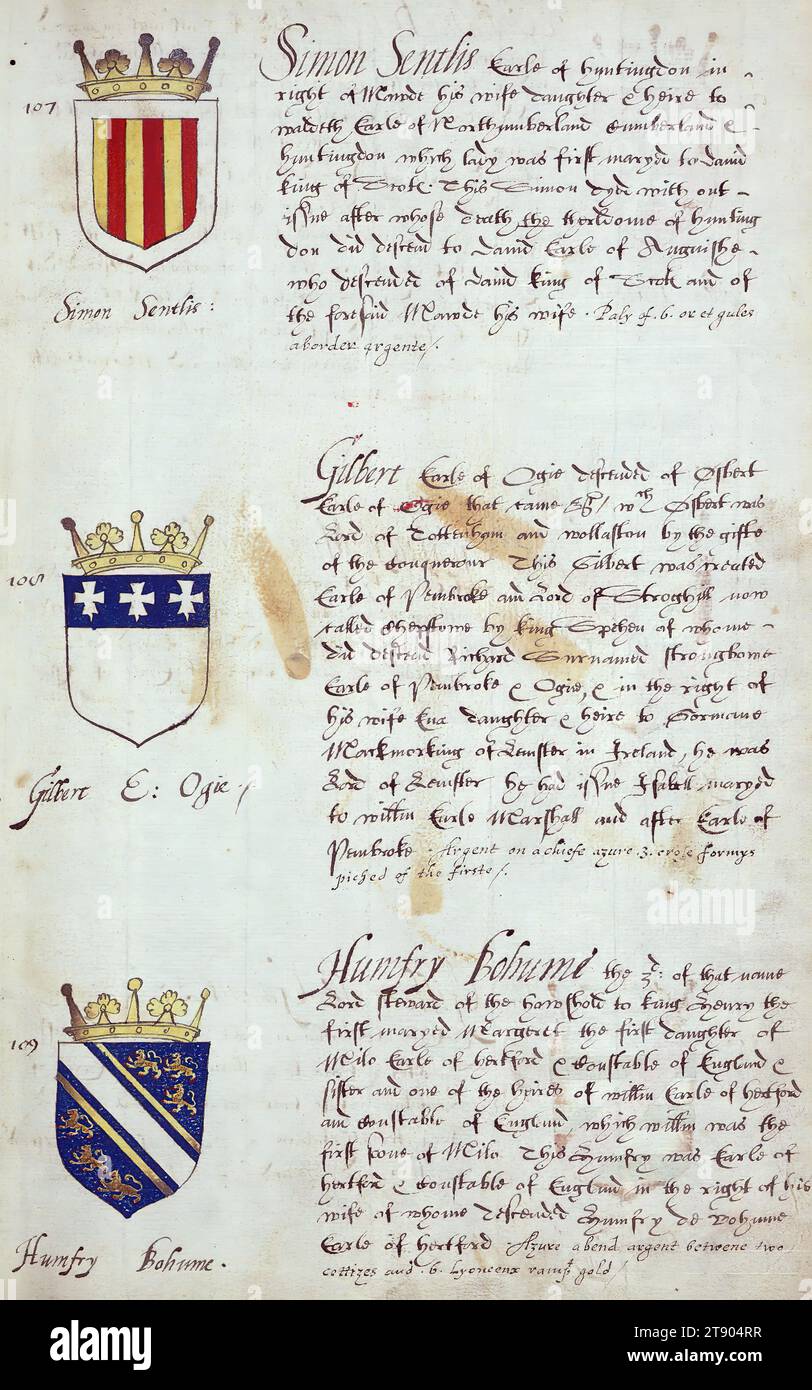 107
Simon Sentlis Earle of Huntingdon in
right of Mawde his wife daughter & heire to
waldeth Earle of Northumberland Cumberland &
Huntingdon which lady was first maryd to david
king of Scotē. This Simon dyed with out
issue after whose death the therldome of Hunting
don did descend to david Earle of Anguishe
who descended of david king of Scotē and of
the foresaid Mawde his wife. Paly of .6. or et gules
a border argente/.
Simon Sentlis:
108
Gilbert Earle of Ogie descended of Osbert
Earle of Ogie that came wth Osbert was
Lord of Tottenham and wollaston by the gifte
of the Conquerour This Gilbert was created
Earle of Pembroke and Lord of Stroghill now
called Chepstowe by king Stephen of whome
did descend Richard Surnamed strongbowe
Earle of Pembroke & Ogie, & in the right of
his wife Eua daughter & heire to Dormane
Mackmorking of Leinster in Ireland, he was
Lord of Leinster he had issue Isabell maryed
to willm Earle Marshall and after Earle of
Pembroke. Argent on a chiefe azure .3. crose formys
piched of the firste/.
Gilbert E: Ogie./
109
Humfry Bohume the 3d: of that name
Lord steward of the howshold to king Henry the
first maryed Margeret the first daughter of
Milo Earle of hertford & Constable of England &
sister and one of the heires of willm Earle of hertford
and Constable of England, which willm was the
first sone of Milo. This Humfry was Earle of
hertford & Constable of England in the right of his
wife of whome descended Humfry de Bohume
Earle of hertford. Azure a bend argent betwene two
cottizes and .6. Lyoncenx ramp gold/
Humfry Bohume.
alamy
Image ID: 2T904RR
www.alamy.com